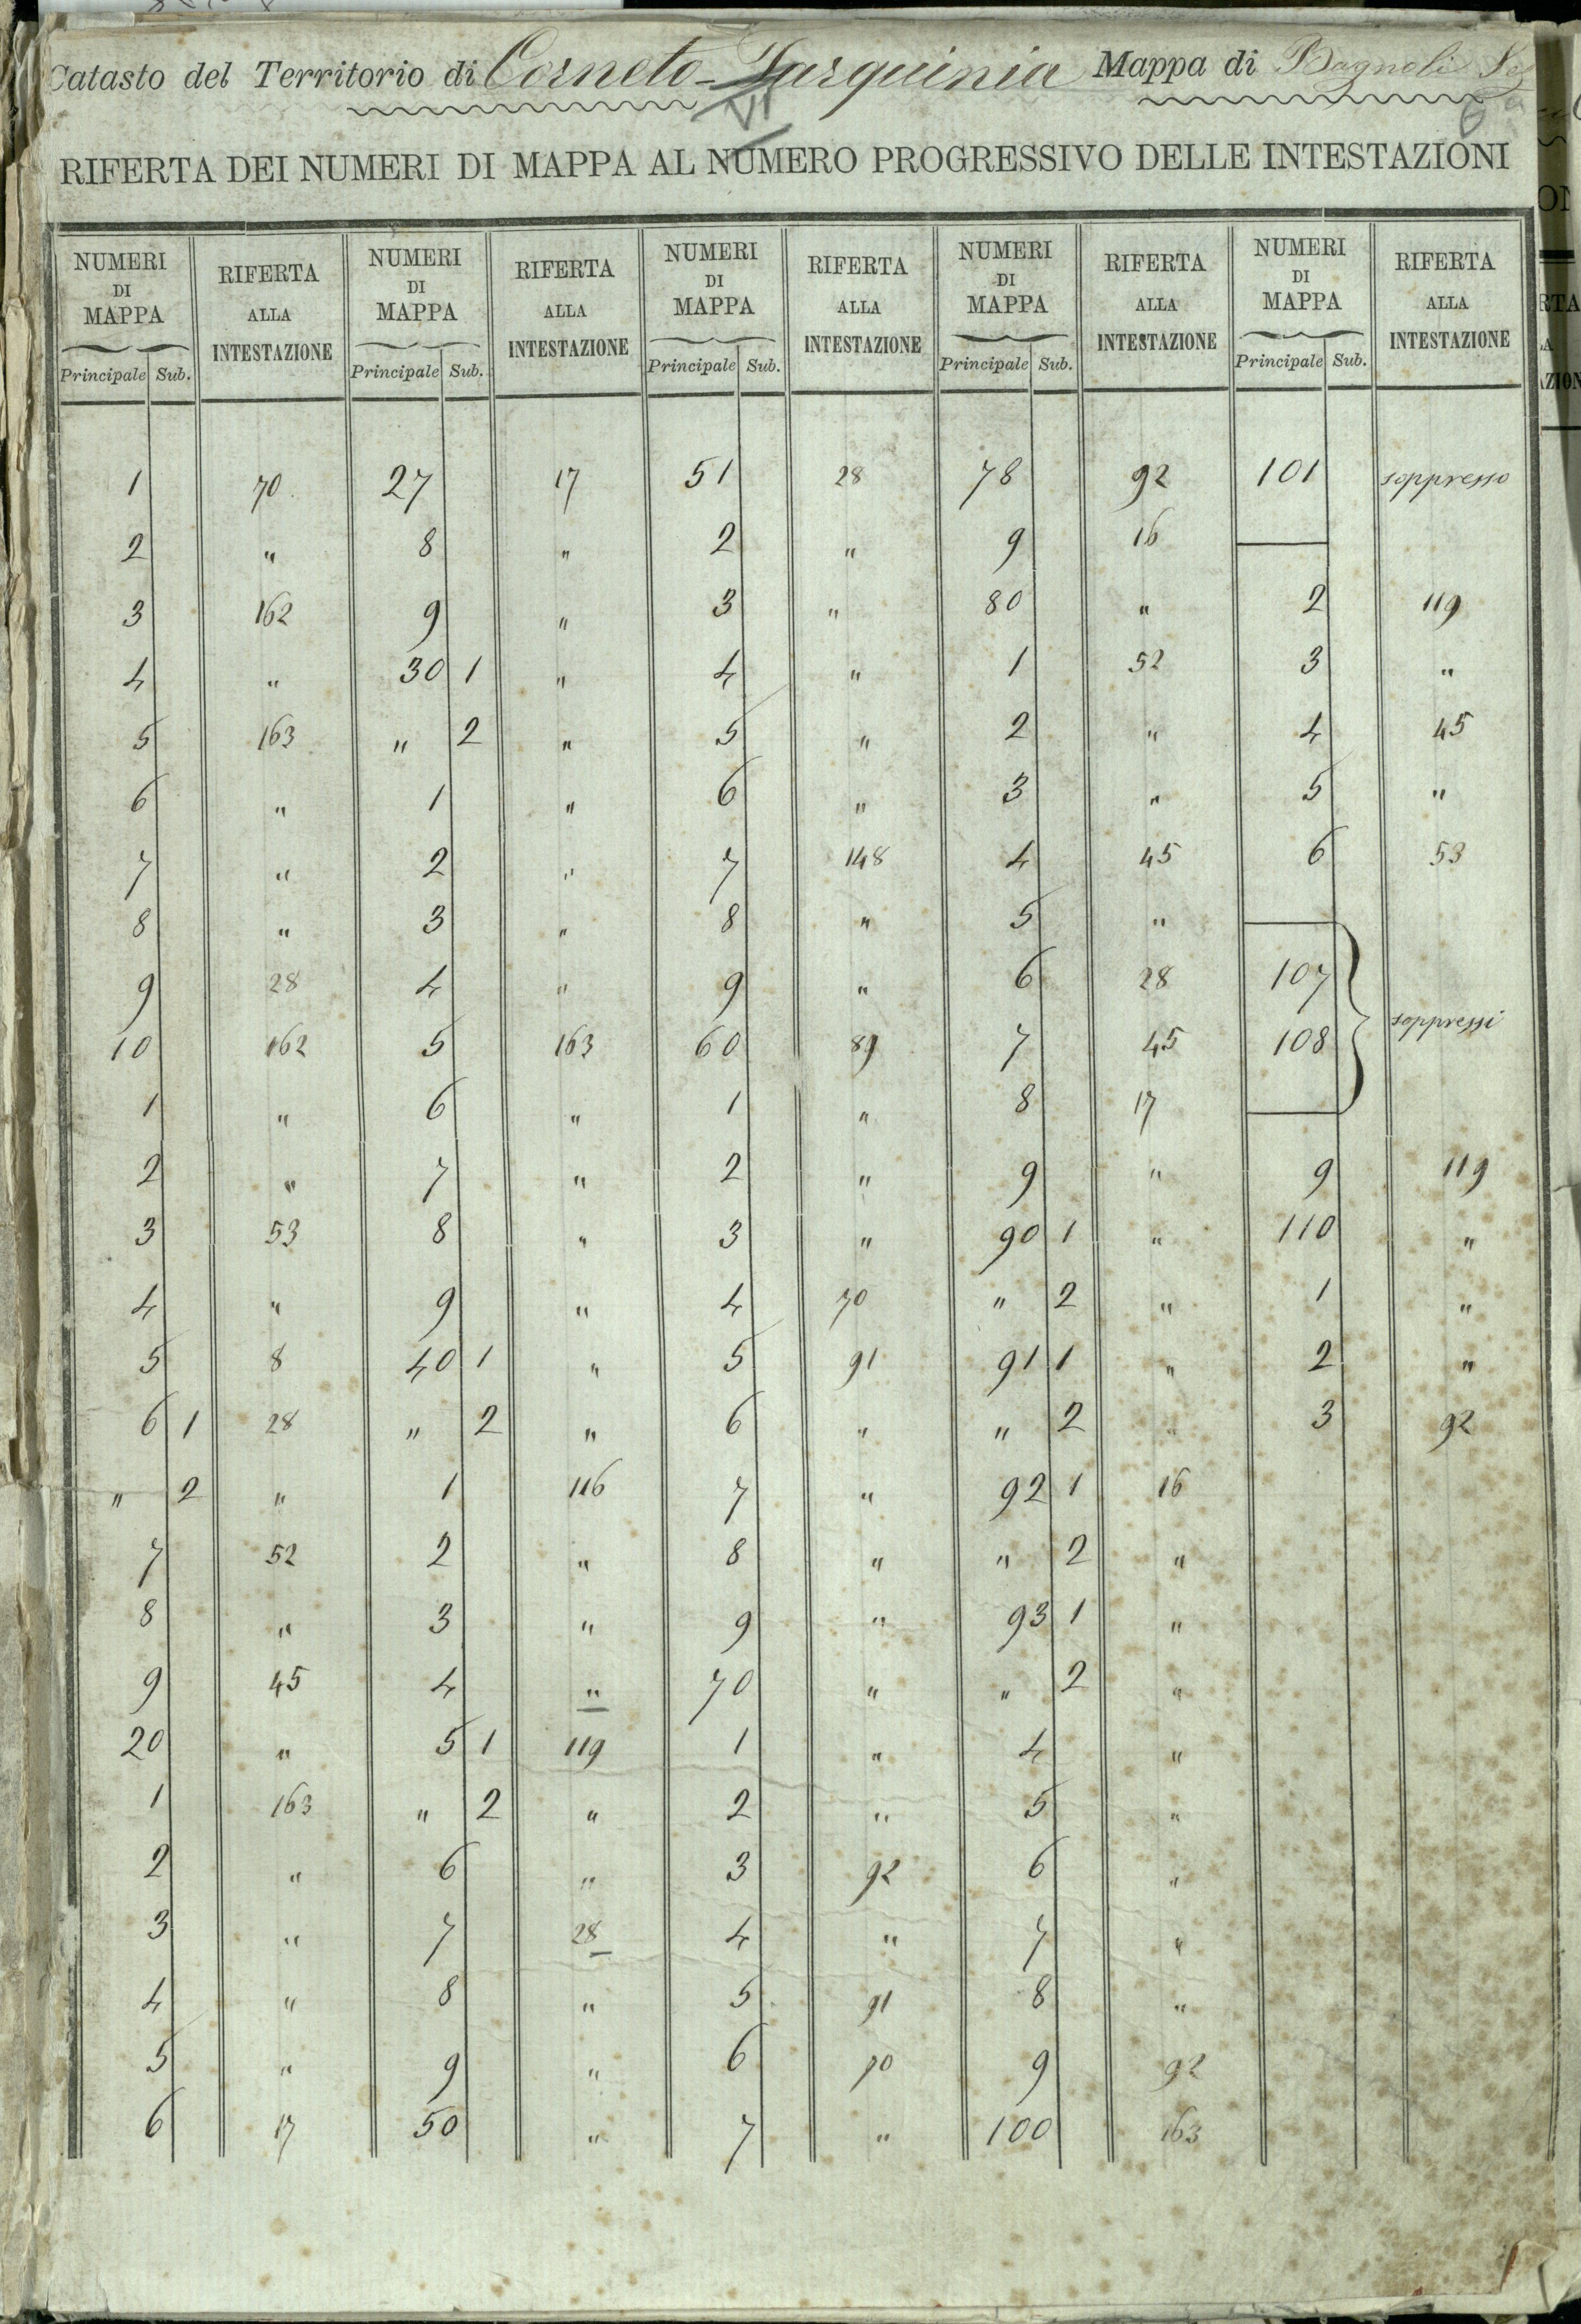 Catasto del Territorio di Corneto-Tarquinia Mappa di Bagnoli
VI
RIFERTA DEI NUMERI DI MAPPA AL NUMERO PROGRESSIVO DELLE INTESTAZIONI
NUMERI DI MAPPA RIFERTA ALLA INTESTAZIONE NUMERI DI MAPPA RIFERTA ALLA INTESTAZIONE NUMERI DI MAPPA RIFERTA ALLA INTESTAZIONE NUMERI DI MAPPA RIFERTA ALLA INTESTAZIONE NUMERI DI MAPPA RIFERTA ALLA INTESTAZIONE
Principale Sub. Principale Sub. Principale Sub. Principale Sub. Principale Sub.
1 70 27 17 51 28 78 92 101 soppresso
2 " 8 " 2 " 9 16
3 162 9 " 3 " 80 " 2 119
4 " 30 1 " 4 " 1 52 3 "
5 163 " 2 " 5 " 2 " 4 45
6 " 1 " 6 " 3 " 5 "
7 " 2 " 7 148 4 45 6 53
8 " 3 " 8 " 5 "
9 28 4 " 9 " 6 28 107
10 162 5 163 60 89 7 45 108 soppressi
1 " 6 " 1 " 8 17
2 " 7 " 2 " 9 " 9 119
3 53 8 " 3 " 90 1 " 110 "
4 " 9 " 4 70 " 2 " 1 "
5 8 40 1 " 5 91 91 1 " 2 "
6 1 28 " 2 " 6 " " 2 " 3 92
" 2 " 1 116 7 " 92 1 16
7 52 2 " 8 " " 2 "
8 " 3 " 9 " 93 1 "
9 45 4 " 70 " " 2 "
20 " 5 1 119 1 " 4 "
1 163 " 2 " 2 " 5 "
2 " 6 " 3 92 6 "
3 " 7 28 4 " 7 "
4 " 8 " 5 91 8 "
5 " 9 " 6 70 9 92
6 17 50 " 7 " 100 163